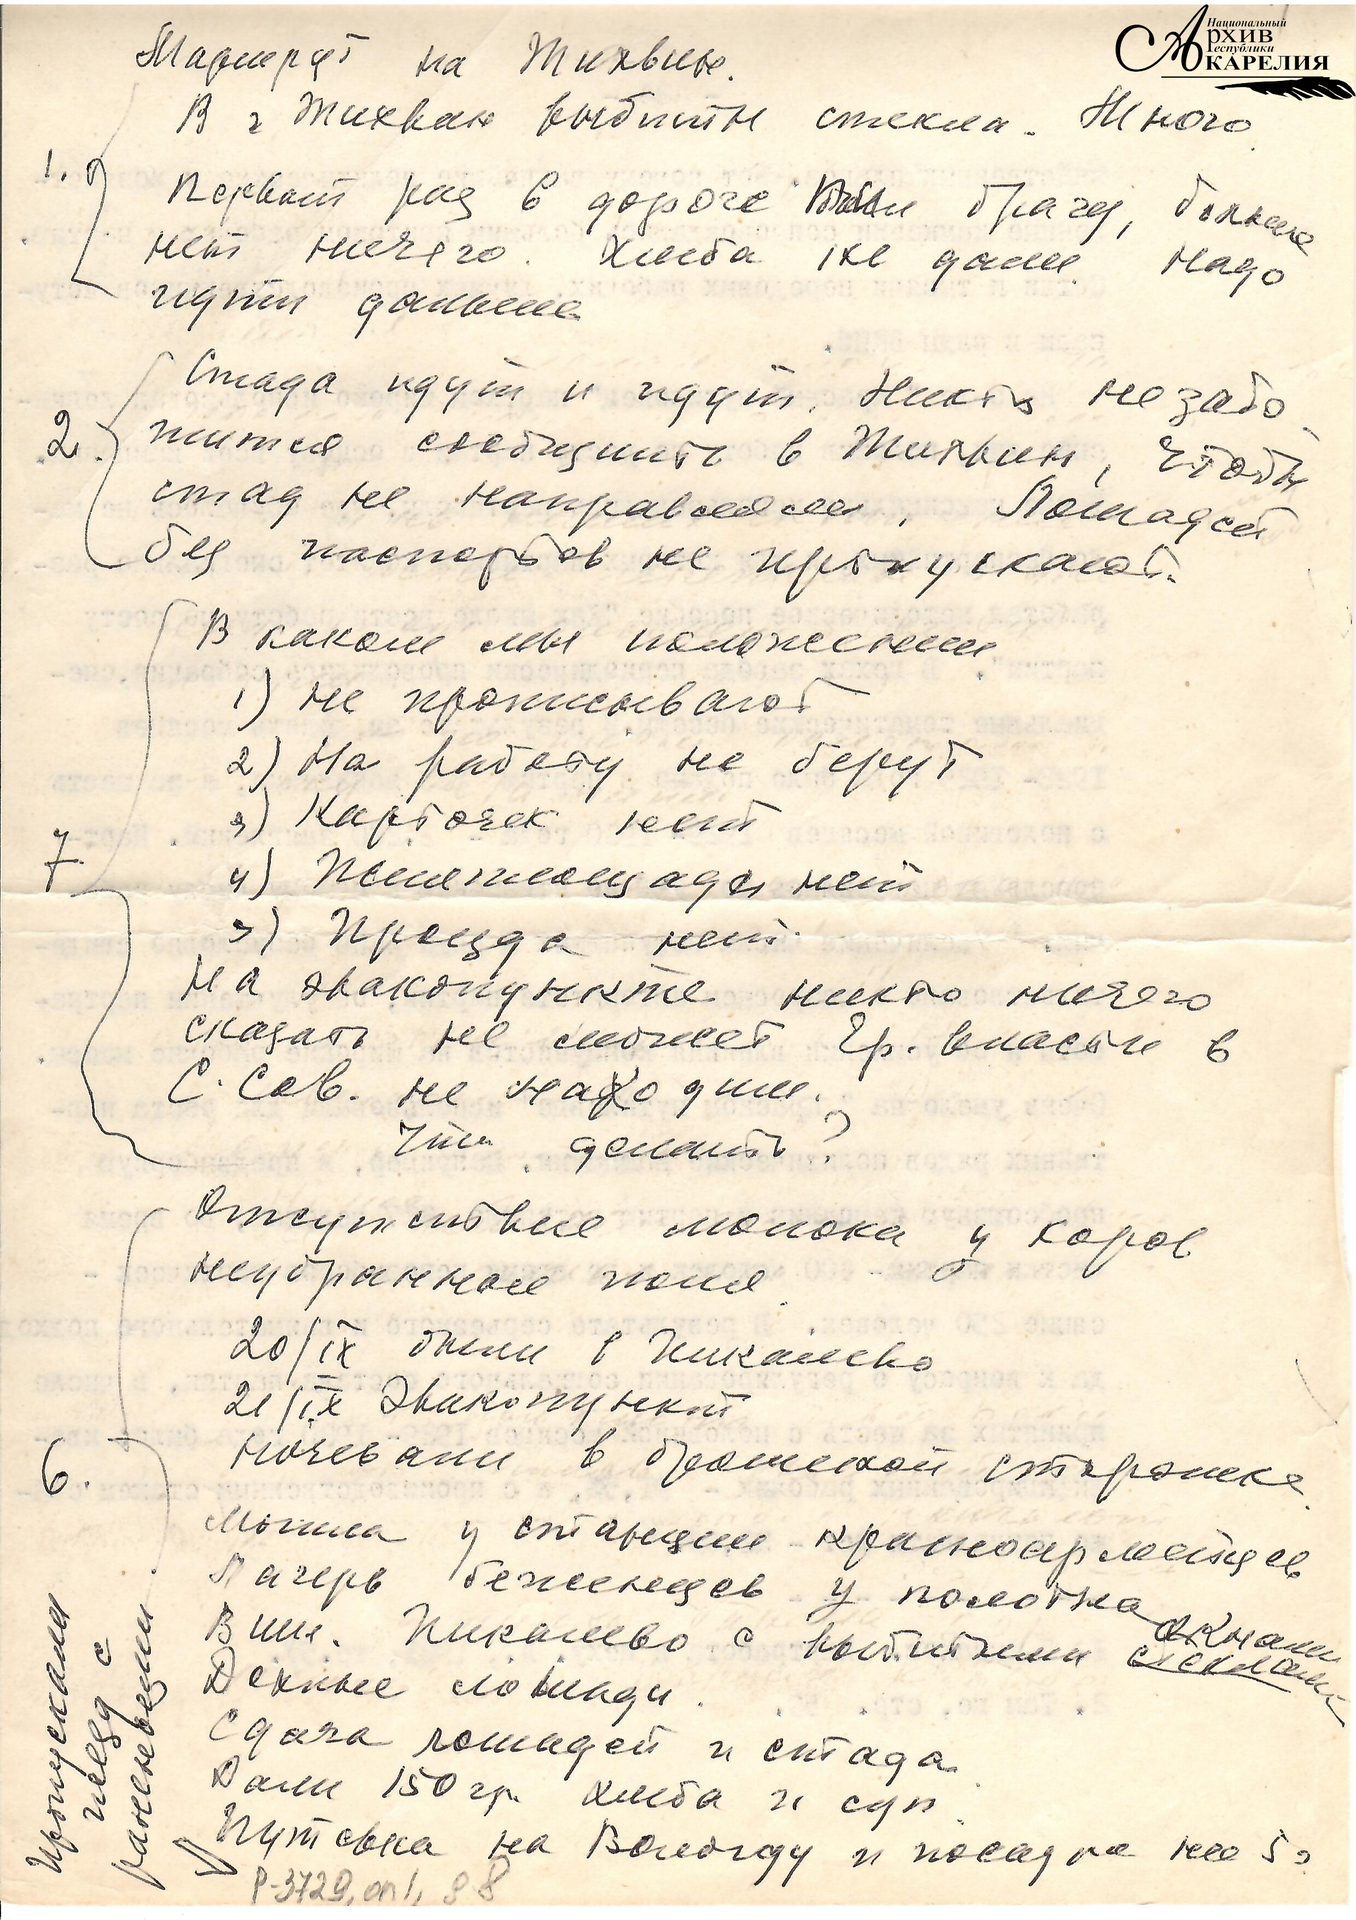 Национальный
Архив
Республики
КАРЕЛИЯ
Маршрут на Тихвин.
В г Тихвин выбиты стекла. Много
1.
Первый раз в дороге брагу, больше
нет ничего. Хлеба не дали надо
идти дальше
2.
Стада идут и идут. Никто не забо
тится сообщить в Тихвин, чтобы
стад не направляли, Лошадей
без паспортов не пропускают.
7
В каком мы положении
1) не прописывают
2) На работу не берут
3) Карточек нет
4) Жилплощади нет
5) Проезда нет.
На эвакопункте никто ничего
сказать не может Гр. власти в
С. Сов. не находим.
Что делать?
Отсутствие молока у коров
неубранные поля
20/IX были в Пикалево
21/IX Эвакопункт
6.
ночевали в брошенной сторожке.
Могила у станции красноармейцев
Лагерь беженцев у полотна
В Пикалево с выбитыми окнами
стеклами
Дохные лошади.
Сдача лошадей и стада
Дали 150 гр. хлеба и суп
Путевка на Вологду и посадка на 5
Пропускали
поезд с
ранеными
Р-3729, оп 1, 8